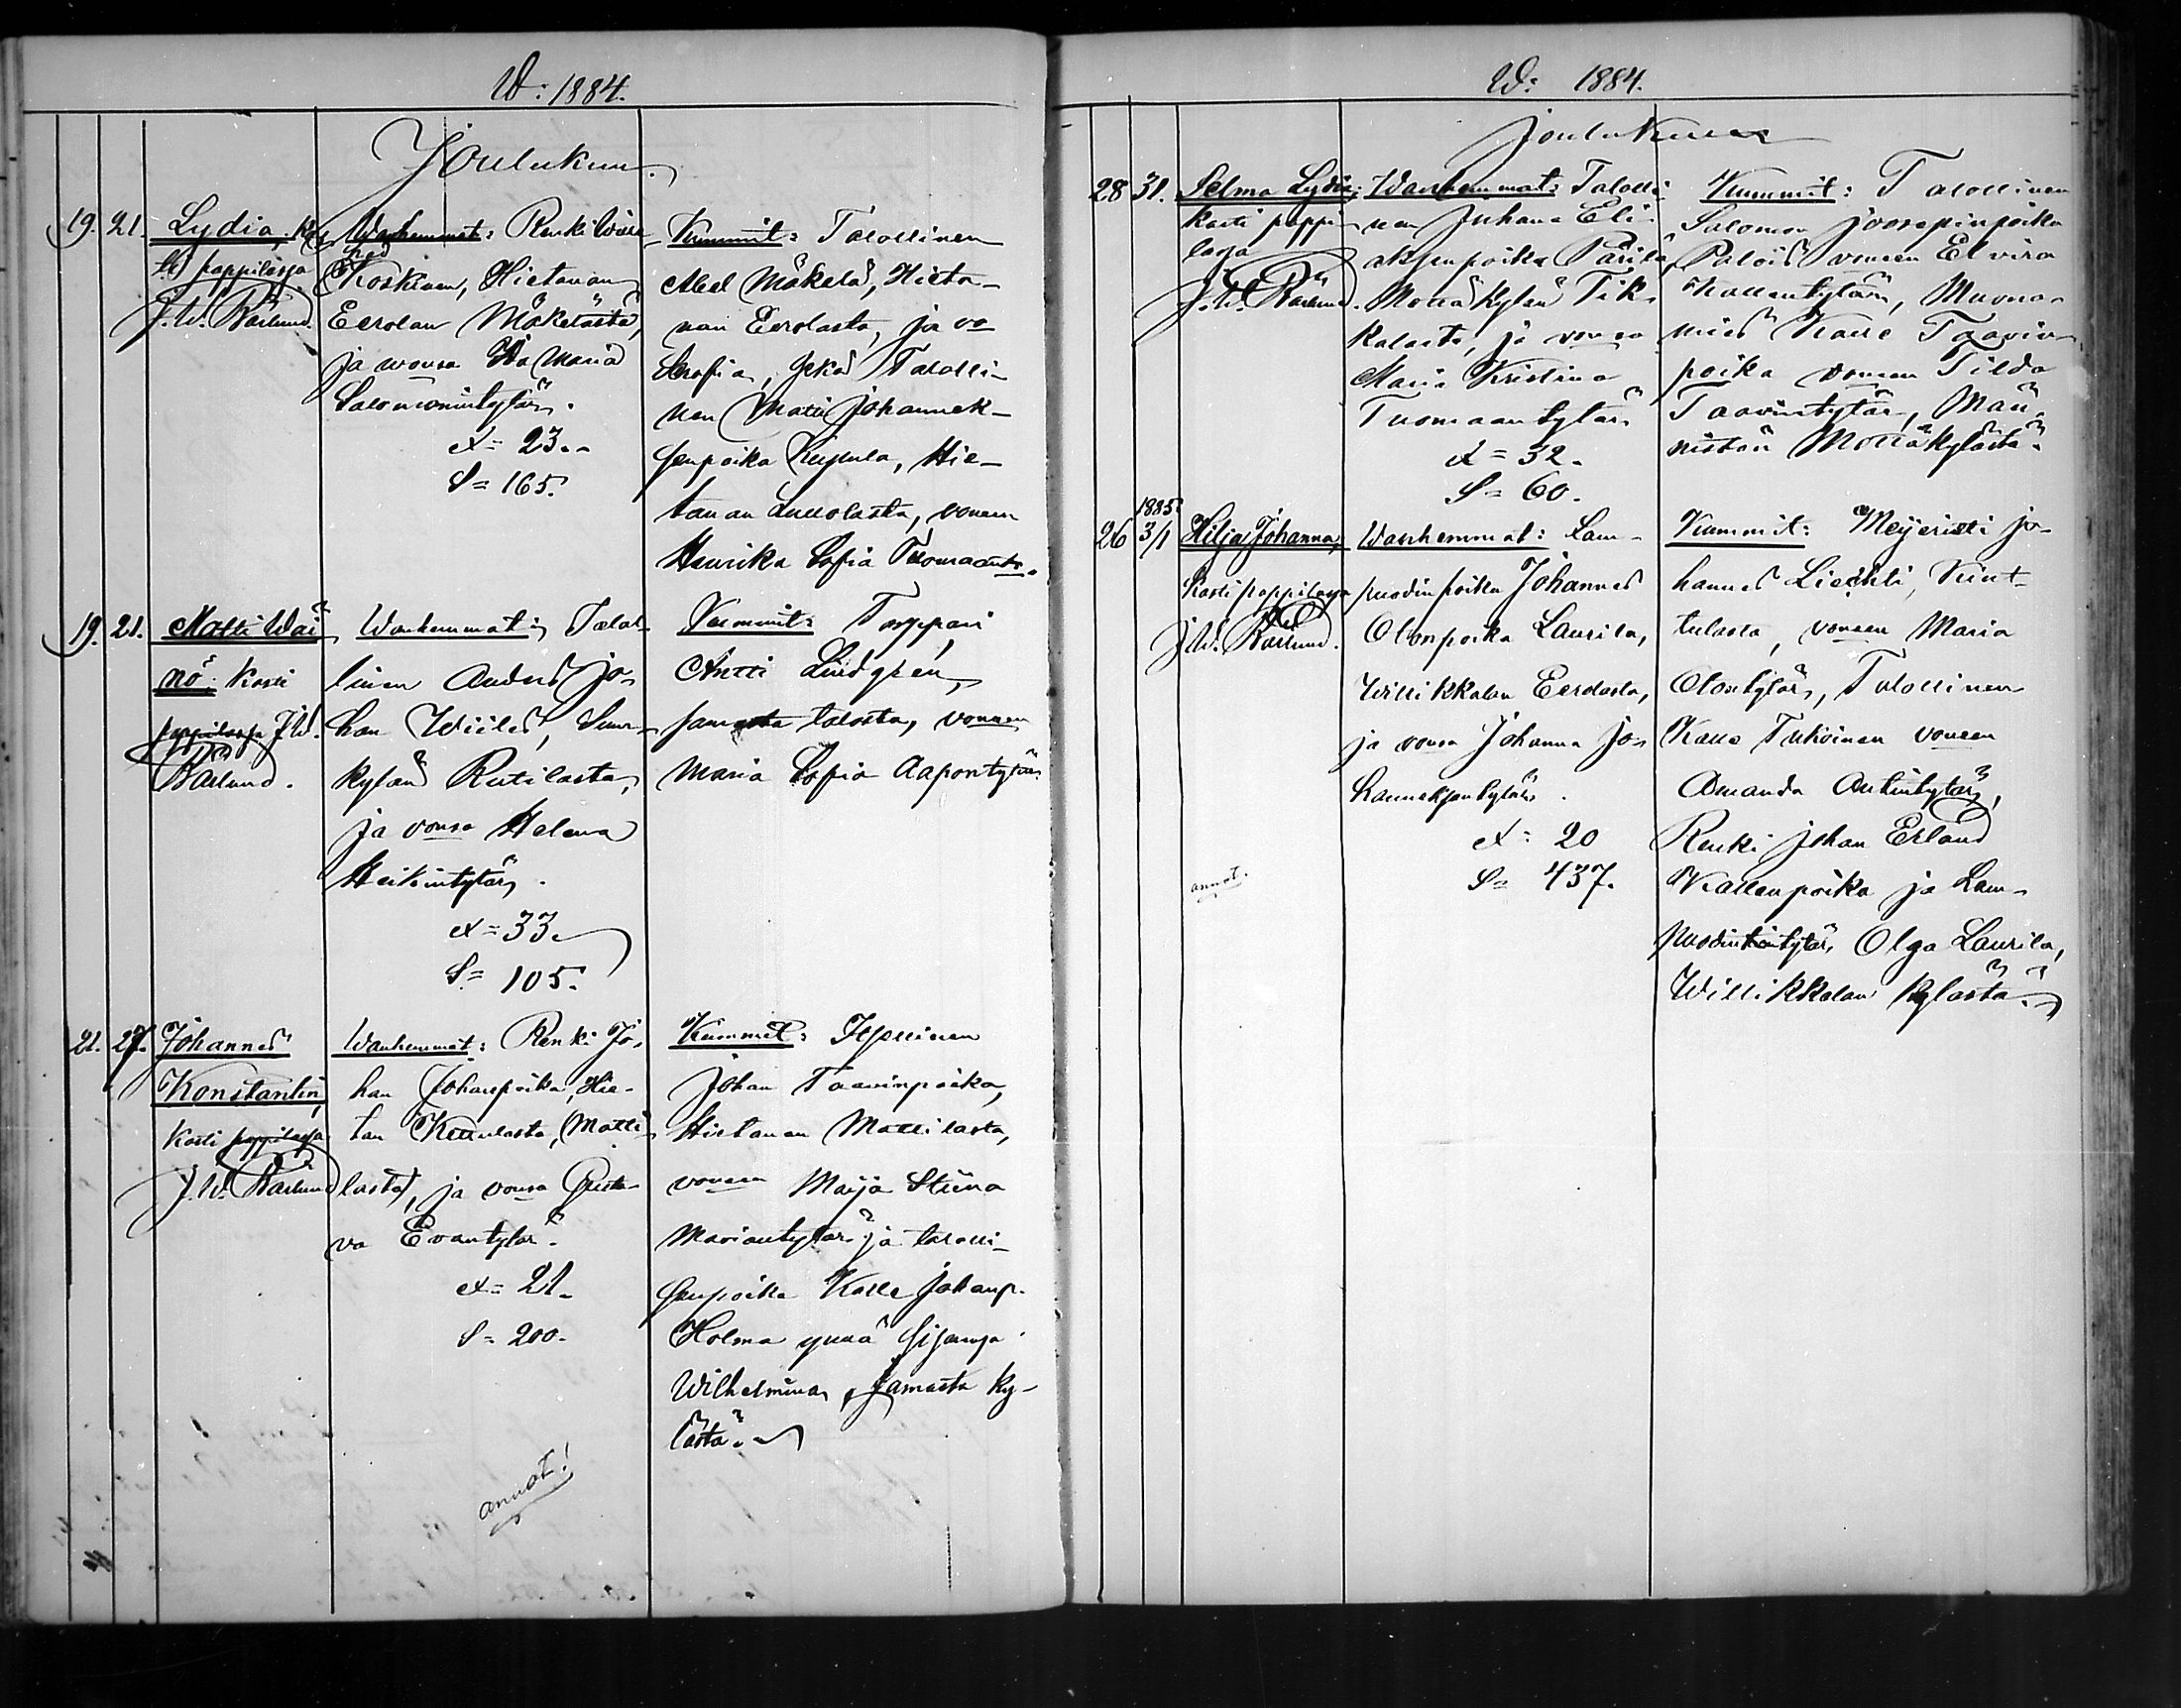 W: 1884.
Joulukuu.
19. 21. Lydia, Kas
ti pappilassa
J. W. Barlund.
Wanhemmat: Renki Wille
Koskinen, Hietanan
Eerolan Mäkelästä,
ja wonsa Ida Maria
Salomonintytär.
A = 23.
S = 165.
Kummit: Talollinen
Abel Mäkelä, Hieta-
nan Eerolasta, ja vo
Serafia, sekä Talolli-
nen Matti Johannek-
senpoika Kuppula, Hie-
tanan, vonsen
Henrika Sofia Tuomaant.
19. 21. Matti Wäi
nö: Kasti
pappilassa J. W.
Barlund.
Wanhemmat: Talol-
linen Anders Jo-
han Wiiles, Suur-
kylän Rutilasta,
ja vonsa Helena
Heikintytär.
A = 33
S = 105.
Kummit: Torppari
Antti Lindgren,
samasta talosta, vonsen
Maria Sofia Aapontytär
21. 27. Johannes
Konstantin,
Kasti pappilassa
J. W. Barlund
Wanhemmat: Renki Jo-
han Johanpoika, Hie-
tan Kullulasta, (Matti-
lasta), ja vonsa Gusta-
va Evantytär.
A = 21.
S = 200.
Kummit: Itsellinen
Johan Taavinpoika,
Hietanan Mattilasta,
vonsen Maija Stiina
Mariantytär ja talolli-
senpoika Kalle Johanp.
Holma ynnä sisarensa
Wilhelmina, samasta ky-
lästä.
annot!
W: 1884.
Joulukuu
28 31. Selma Lydia;
Kasti pappi-
lassa
J. W. Barlund.
Wanhemmat: Talolli-
nen Juhana Eli-
aksenpoika Pärilä,
Mottäkylän Tik-
kalasta, ja vonsa
Maria Kristina
Tuomaantytär
A = 32.
S = 60.
Kummit: Talollinen
Salomon Joosepinpoika
Palois vonsen Elvira
Kallentytär, Muona-
mies Kalle Taavin-
poika vonsen Tilda
Taavintytär, Män-
nistön Mottäkylästä.
1885
26 3/1 Hilja Johanna,
Kasti pappilassa
J. W. Barlund.
Wanhemmat: Lam-
puodinpoika Johannes
Olonpoika Laurila,
Willikkalan Eerolasta,
ja vonsa Johanna Jo-
hanneksentytär.
A = 20
S = 437.
annot.
Kummit: Meijeristi Jo-
hannes Liechti, Kint-
tulasta, vonsen Maria
Olontytär, Talollinen
Kalle Tukiainen vonsen
Amanda Antintytär,
Renki Johan Erland
Kallenpoika ja Lam-
puodintytär Olga Laurila,
Willikkalan kylästä.